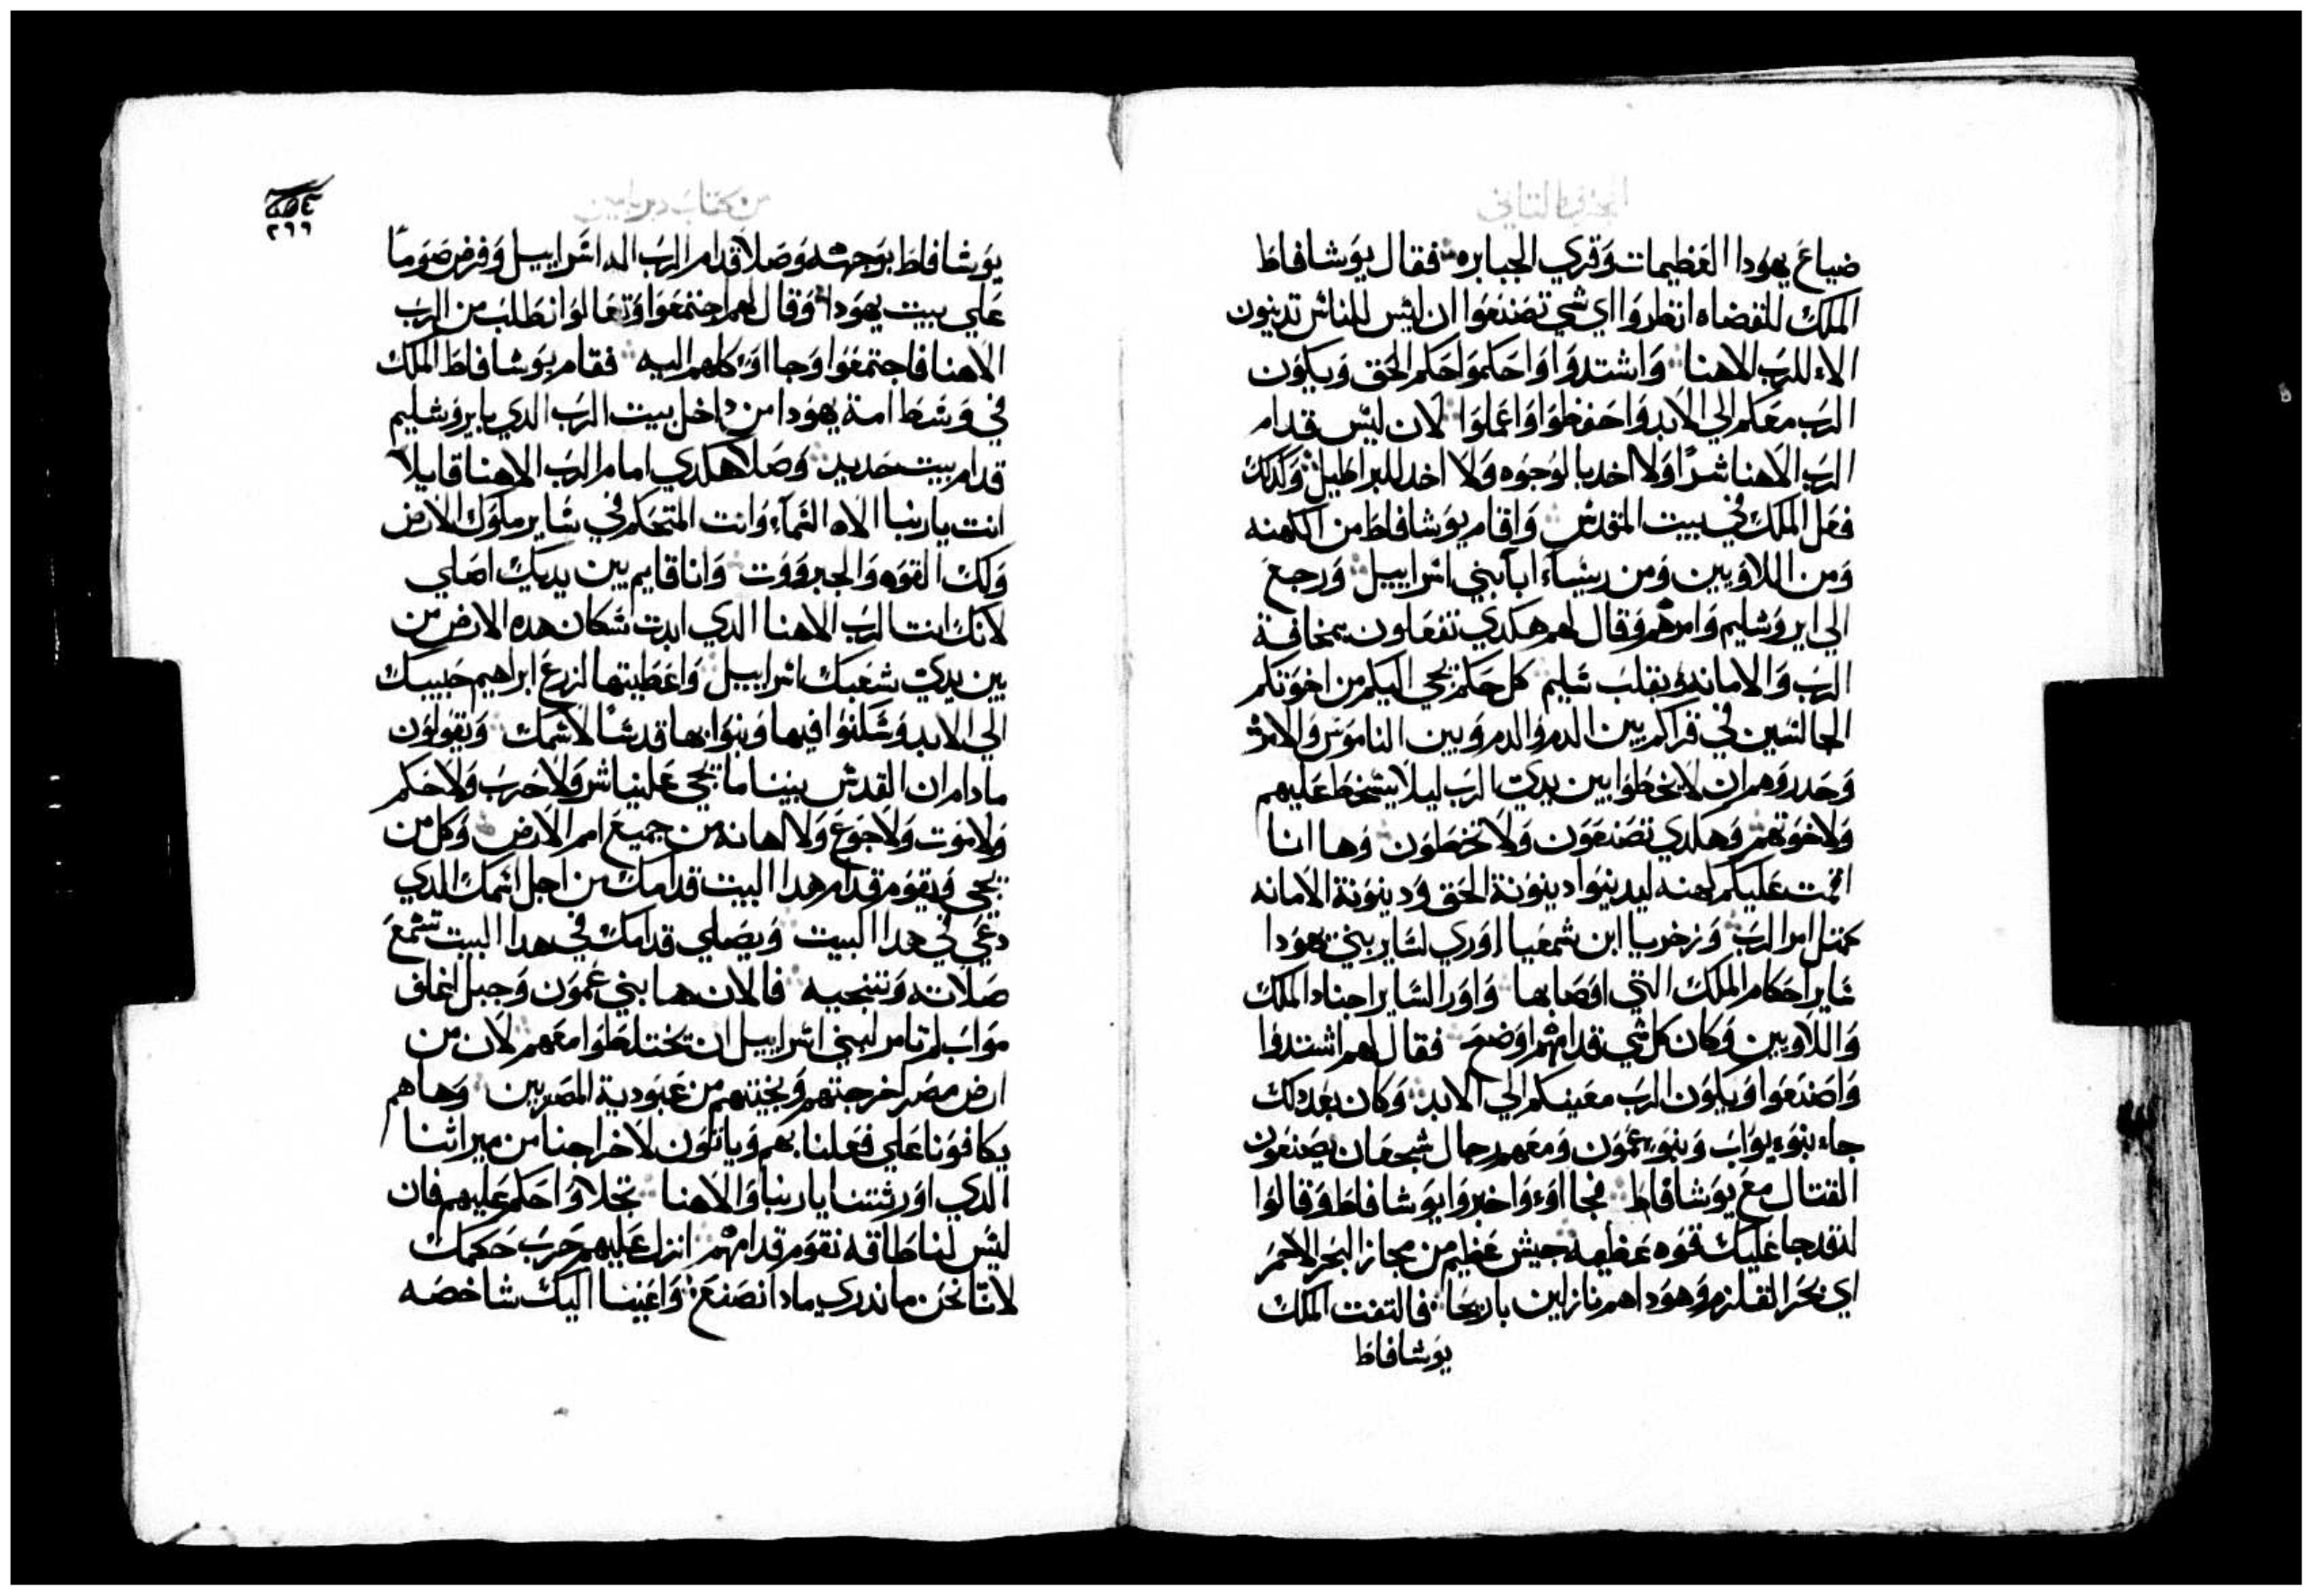 الجزو الثاني
ضياع يهودا العظيمات وقري الجبابره فقال يوشافاط
الملك للقضاه انظروا اي شي تصنعوا ان ليس للناس تدينون
الاء للرب الاهنا واشتدوا واحكموا حكم الحق ويكون
الرب معكم الي الابد واحفظوا واعملوا لان ليس قدام
الرب الاهنا شرًا ولا اخد بالوجوه ولا اخد للبراطيل وكدلك
فعل الملك في بيت المقدس واقام يوشافاط من الكهنه
ومن اللاويين ومن ريساء ابا بني اسراييل ورجع
الي ايروشليم وامرهم وقال لهم هكدي تفعلون بمخافة
الرب والامانه وبقلب سليم كل حكم يجي اليكم من اخوتكم
الجالسين في قراكم بين الدم والدم وبين الناموس والامر
وحدروهم ان لا يخطوا بين يدي الرب ليلا يسخط عليهم
ولاخوتهم وهكدي تصنعون ولا تخطون وها انا
اقمت عليكم كهنه ليدينوا دينونة الحق ودينونة الامانه
كمتل امر الرب وزخريا ابن شمعيا اوري لساير بني يهودا
ساير احكام الملك التي اوصا بها واورا لساير اجناد الملك
واللاويين وكان كل شي قدامهم اوضع فقال لهم اشتدوا
واصنعوا ويكون الرب معينكم الي الابد وكان بعد دلك
جاء بنوء يواب وبنو عمون ومعهم رجال شجعان يصنعون
القتال مع يوشافاط فجااوء واخبروا يوشافاط وقالوا
لقد جا عليك قوه عظيمه جيش عظيم من مجاز البحر الاحمر
اي بحر القلزم وهودا هم نازلين باريحا فالتفت الملك
يوشافاط
من كتاب دبريامين
٢٩٩
يوشافاط بوجهه وصلا قدام الرب اله اسراييل وفرض صومًا
علي بيت يهودا وقال لهم اجتمعوا وتعالوا نطلب من الرب
الاهنا فاجتمعوا وجااوء كلهم اليه فقام يوشافاط الملك
في وسط امة يهودا من داخل بيت الرب الدي بايروشليم
قدام بيت حديد وصلا هكدي امام الرب الاهنا قايلاً
انت يا ربنا الاه السماء وانت المتحكم في ساير ملوك الارض
ولك القوه والجبرووت وانا قايم بين يديك اصلي
لانك انت الرب الاهنا الدي ابدت سكان هده الارض من
بين يدي شعبك اسراييل واعطيتها لزرع ابراهيم حبيبك
الي الابد وسكنوا فيها وبنوا بها قدسًا لاسمك ويقولون
ما دام ان القدس بيننا ما يجي علينا شر ولا حرب ولا حكم
ولا موت ولا جوع ولا اهانه من جميع امم الارض وكل من
يجي ويقوم قدام هدا البيت قدامك من اجل اسمك الدي
دعي في هدا البيت ويصلي قدامك في هدا البيت تسمع
صلاته وتنجيه فالان ها بني عمون وجبل اعلاق
مواب لم تامر لبني اسراييل ان تختلطوا معهم لان من
ارض مصر اخرجتهم ونجيتهم من عبودية المصريين وها هم
يكافونا علي فعلنا بهم وياتون لاخراجنا من ميراثنا
الدي اورثتنا يا ربنا والاهنا تجلا واحكم عليهم فان
ليس لنا طاقه نقوم قدامهم انزل عليهم حرب حكمك
لاننا نحن ما ندري مادا نصنع واعيننا اليك شاخصه